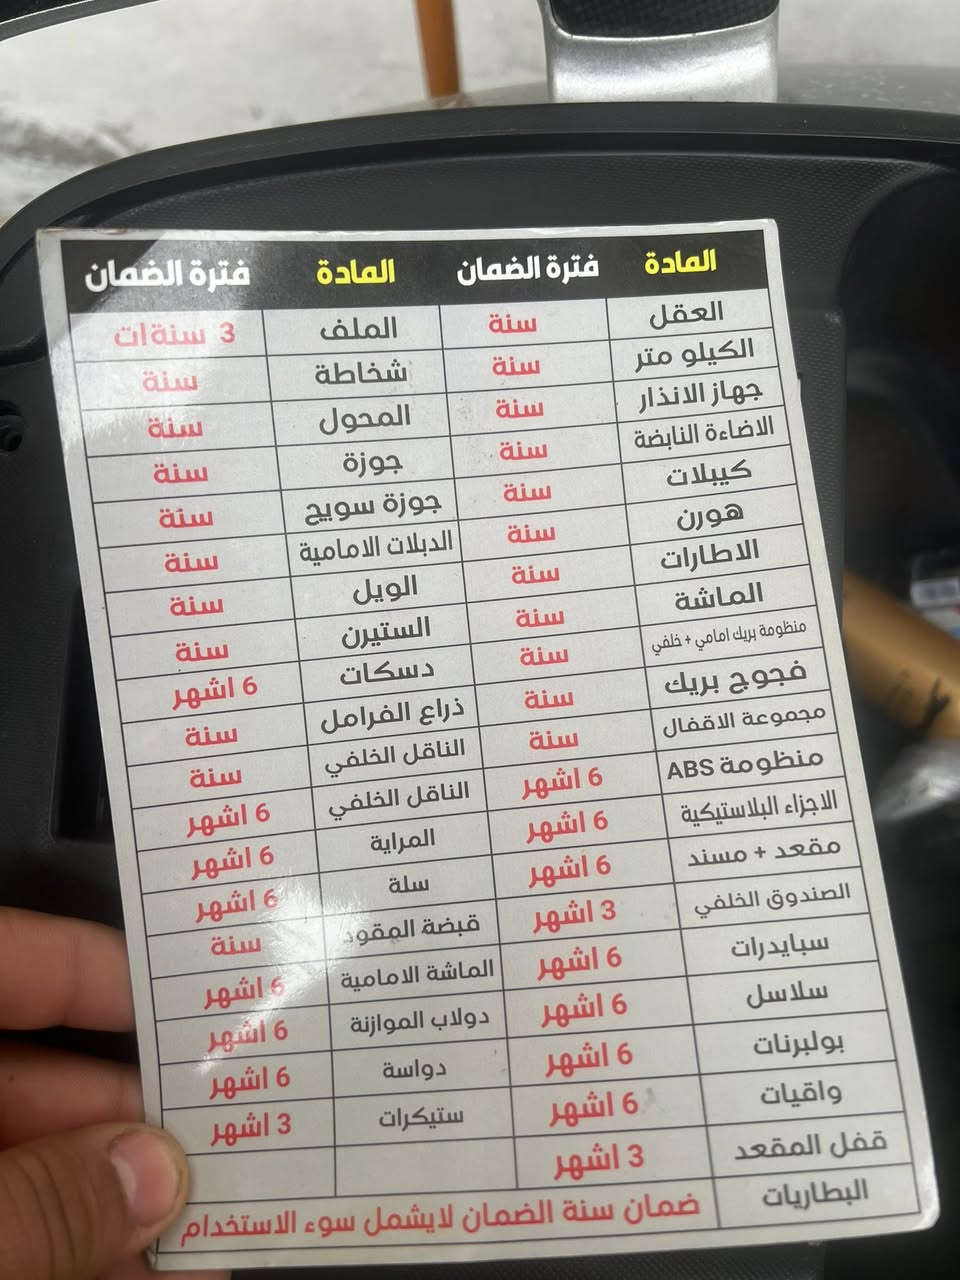 المادة فترة الضمان المادة فترة الضمان
العقل سنة الملف 3 سنةات
الكيلو متر سنة شخاطة سنة
جهاز الانذار سنة المحول سنة
الاضاءة النابضة سنة جوزة سنة
كيبلات سنة جوزة سويج سنة
هورن سنة الدبلات الامامية سنة
الاطارات سنة الويل سنة
الماشة سنة الستيرن سنة
منظومة بريك امامي + خلفي سنة دسكات 6 اشهر
فجوج بريك سنة ذراع الفرامل سنة
مجموعة الاقفال سنة الناقل الخلفي سنة
منظومة ABS 6 اشهر الناقل الخلفي 6 اشهر
الاجزاء البلاستيكية 6 اشهر المراية 6 اشهر
مقعد + مسند 6 اشهر سلة 6 اشهر
الصندوق الخلفي 3 اشهر قبضة المقود سنة
سبايدرات 6 اشهر الماشة الامامية 6 اشهر
سلاسل 6 اشهر دولاب الموازنة 6 اشهر
بولبرنات 6 اشهر دواسة 6 اشهر
واقيات 6 اشهر ستيكرات 3 اشهر
قفل المقعد 3 اشهر
البطاريات ضمان سنة الضمان لايشمل سوء الاستخدام